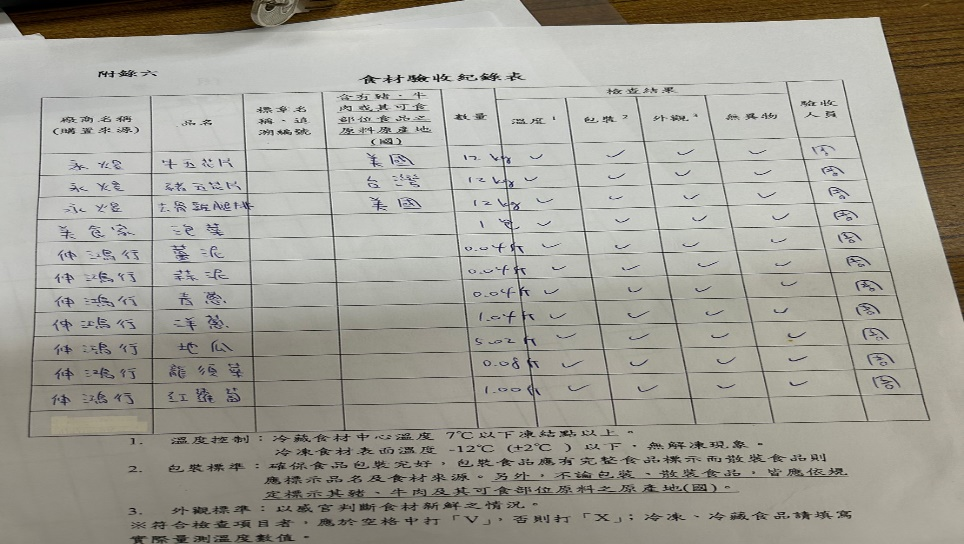 附錄六
食材驗收紀錄表
廠商名稱(購置來源) 品名 標章名稱、追溯編號 含有豬、牛肉或其可食部位食品之原料原產地(國) 數量 檢查結果 溫度1 包裝2 外觀3 無異物 驗收人員
永煌 牛五花片 美國 12 kg ✓ ✓ ✓ ✓ 周
永煌 豬五花片 台灣 12 kg ✓ ✓ ✓ ✓ 周
永煌 去骨雞腿排 美國 12 kg ✓ ✓ ✓ ✓ 周
美食家 泡菜 1 包 ✓ ✓ ✓ ✓ 周
仲鴻行 薑泥 0.04斤 ✓ ✓ ✓ ✓ 周
仲鴻行 蒜泥 0.04斤 ✓ ✓ ✓ ✓ 周
仲鴻行 青蔥 0.04斤 ✓ ✓ ✓ ✓ 周
仲鴻行 洋蔥 1.04斤 ✓ ✓ ✓ ✓ 周
仲鴻行 地瓜 5.02斤 ✓ ✓ ✓ ✓ 周
仲鴻行 龍須菜 0.08斤 ✓ ✓ ✓ ✓ 周
仲鴻行 紅蘿蔔 1.00斤 ✓ ✓ ✓ ✓ 周
1. 溫度控制：冷藏食材中心溫度 7℃以下凍結點以上。
冷凍食材表面溫度 -12℃ (±2℃ ) 以下，無解凍現象。
2. 包裝標準：確保食品包裝完好，包裝食品應有完整食品標示而散裝食品則
應標示品名及食材來源。另外，不論包裝、散裝食品，皆應依規
定標示其豬、牛肉及其可食部位原料之原產地(國)。
3. 外觀標準：以感官判斷食材新鮮之情況。
※符合檢查項目者，應於空格中打「V」，否則打「X」；冷凍、冷藏食品請填寫
實際量測溫度數值。